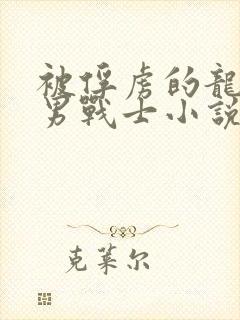 被俘虏的龍
男戰士小說
克莱尔